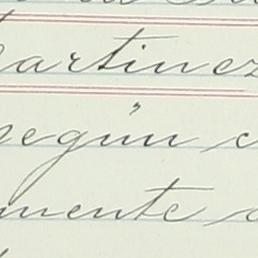 artinez
según c
mente